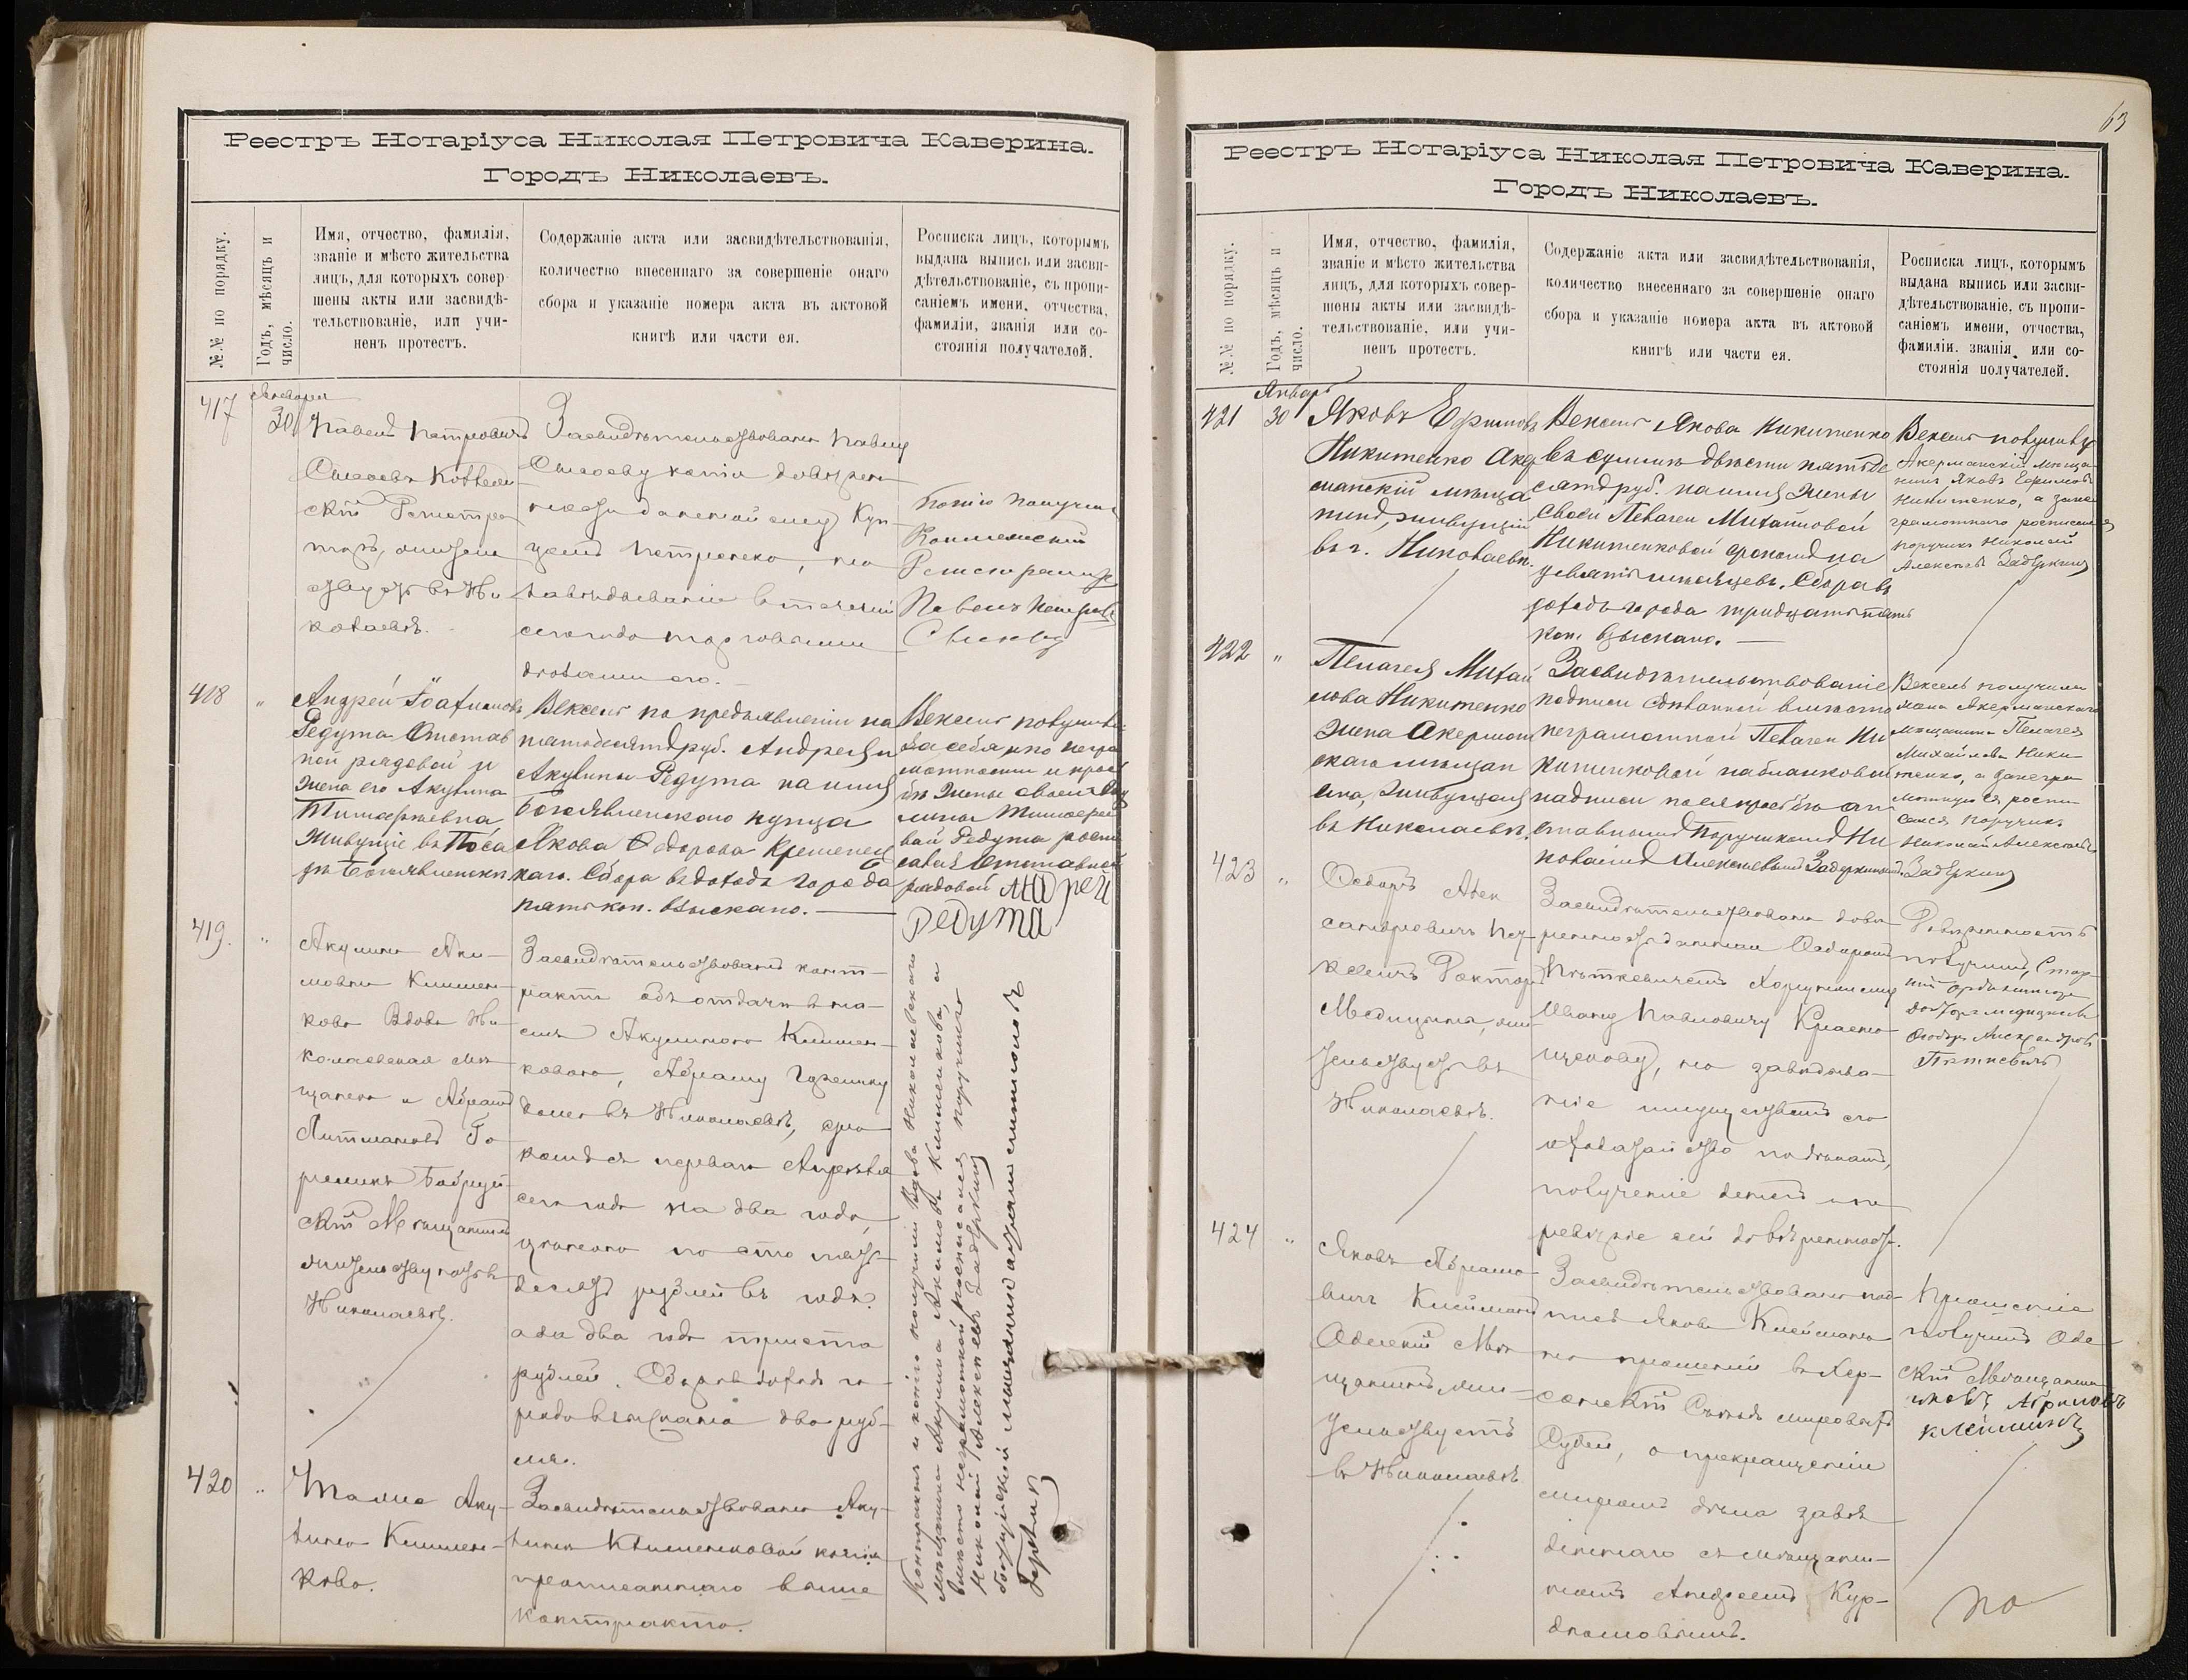 Реестръ Нотаріуса Николая Петровича Каверина.
Городъ Николаевъ.
№.№ по порядку.
Годъ, мѣсяцъ и
число.
Имя, отчество, фамилія,
званіе и мѣсто жительства
лицъ, для которыхъ совер-
шены акты или засвидѣ-
тельствованіе, или учи-
ненъ протестъ.
Содержаніе акта или засвидѣтельствованія,
количество внесеннаго за совершеніе онаго
сбора и указаніе номера акта въ актовой
книгѣ или части ея.
Росписка лицъ, которымъ
выдана выпись или засви-
дѣтельствованіе, съ пропи-
саніемъ имени, отчества,
фамиліи, званія или со-
стоянія получателей.
417
Января
30
Павелъ Петровичъ
Коллеж-
скій Регистра-
торъ, житель-
ствуетъ въ Ни-
колаевѣ.
Засвидѣтельствована Павлу
копія довѣрен-
ности данной ему Куп-
цемъ Петренко, на
завѣдываніе въ теченіи
сего года торговыми
дровами его.
Копію получилъ
Коллежскій
Регистраторъ
Павелъ Петровъ
418
"
Андрей
Редута Отстав
ной рядовой и
жена его Акулина
Тимофеевна
живущіе въ Поса
дѣ Богоявленскѣ
Вексель по предъявленіи на
пятьдесятъ руб. Андрея и
Акулины Редута на имя
Богоявленскаго купца
Якова Федорова Кременец
каго. Сбора въ доходъ города
пять коп. взыскано.
Вексель получилъ
за себя и по негра
мотности и прось
бѣ жены своей Аку
лины Тимофее
вой Редута роспи
сался Отставной
рядовой Андрей
Редута
419.
"
Акулина Аки-
мовна Климен-
кова Вдова Ни-
колаевская Мѣ-
щанка и Абрамъ
Литмановъ Го-
реликъ Бобруй-
скій Мѣщанинъ
жительствуютъ въ
Николаевѣ.
Засвидѣтельствованъ конт-
рактъ объ отдачи в на-
емъ Акулиною Климен-
ковою, Абраму Горелику
дома въ Николаевѣ, сро-
комъ съ перваго Апрѣля
сего года на два года,
цѣною по сто пять-
десятъ рублей въ годъ.
а за два года триста
рублей. Сбора въ доходъ го-
рода взыскано два руб-
ля.
Контрактъ и копію получили Вдова Николаевскаго
мѣщанина Акулина Акимова Клименкова, а
вмѣсто неграмотной росписался поручикъ
Николай Алексѣевъ Задеркинъ
Бобруйскій мѣщанинъ
Горелик
420
"
Таже Аку-
лина Климен-
кова.
Засвидѣтельствована Аку-
линѣ Клименковой копія
прописаннаго выше
контракта.
63
Реестръ Нотаріуса Николая Петровича Каверина.
Городъ Николаевъ.
№.№ по порядку.
Годъ, мѣсяцъ и
число.
Имя, отчество, фамилія,
званіе и мѣсто жительства
лицъ, для которыхъ совер-
шены акты или засвидѣ-
тельствованіе, или учи-
ненъ протестъ.
Содержаніе акта или засвидѣтельствованія,
количество внесеннаго за совершеніе онаго
сбора и указаніе номера акта въ актовой
книгѣ или части ея.
Росписка лицъ, которымъ
выдана выпись или засви-
дѣтельствованіе, съ пропи-
саніемъ имени, отчества,
фамиліи, званія, или со-
стоянія получателей.
421
Январь
30
Яковъ Ефимовъ
Никитенко Акер
манскій мѣща
нинъ, живущій
въ г. Николаевѣ.
Вексель Якова Никитенко
въ суммѣ двѣсти пятьде
сятъ руб. на имя жены
своей Пелагеи Михайловой
Никитенковой срокомъ на
девять мѣсяцевъ. Сбора въ
доходъ города тридцать пять
коп. взыскано.
Вексель получилъ
Акерманскій мѣща
нинъ Яковъ Ефимовъ
Никитенко, а за не
грамотнаго росписался
поручикъ Николай
Алексѣевъ Задеркинъ
422
"
Пелагея Михай
лова Никитенко
жена Акерман
скаго мѣщан
ина, живущая
въ Николаевѣ.
Засвидѣтельствованіе
подписи сдѣланной вмѣсто
неграмотной Пелагеи Ни
китенковой на бланковой
надписи по ея просьбѣ от
ставнымъ Поручикомъ Ни
колаемъ Алексѣевымъ Задеркинымъ.
Вексель получила
жена Акерманскаго
мѣщанина Пелагея
Михайлова Ники
тенко, а за негра
мотную роспи
сался поручикъ
Николай Алексѣевъ
Задеркинъ
423
"
Федоръ Алек
сандровичъ Пет-
кевичъ Докторъ
Медицины, жи-
тельствуетъ въ
Николаевѣ.
Засвидѣтельствована довѣ
ренность данная Федоромъ
Петкевичемъ Хорунжему
Ивану Павловичу
на завѣдыва-
ніе имуществомъ его
и ходатайство по дѣламъ,
полученіе денегъ и пе
редовѣріе сей довѣренности.
Довѣренность
получилъ, Стар-
шій ординаторъ
докторъ медицины
Федоръ Александровъ
Петкевичъ
424
"
Яковъ Абрамо-
вичъ Клейманъ
Одесскій Мѣ-
щанинъ, жи-
тельствуетъ
въ Николаевѣ
Засвидѣтельствована под-
пись Якова Клеймана
на прошеніи въ Хер-
сонскій Съѣздъ мировыхъ
Судей, о прекращеніи
миромъ дѣла заве
деннаго съ мѣщани-
номъ Андреемъ Кур-
Прошеніе
получилъ Оде-
скій Мѣщанинъ
Яковъ Абрамовъ
Клейманъ
по